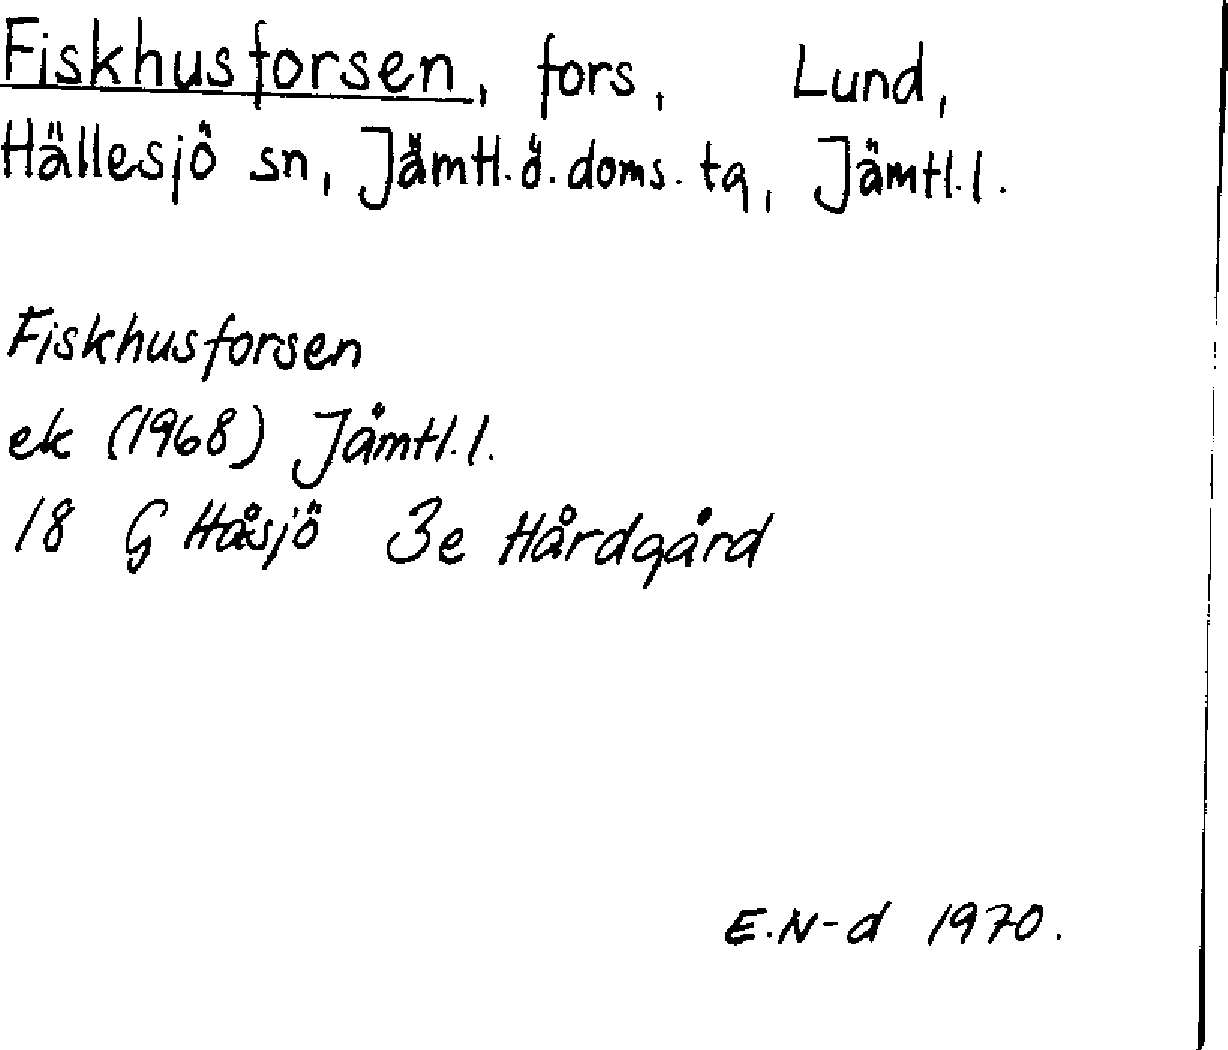 Fiskhusforsen, fors, Lund,
Hällesjö sn, Jämtl.ö.doms.tg, Jämtl.l.
Fiskhusforsen
ek (1968) Jämtl.l.
18 G Håsjö 3e Hårdgård
E.N-d 1970.